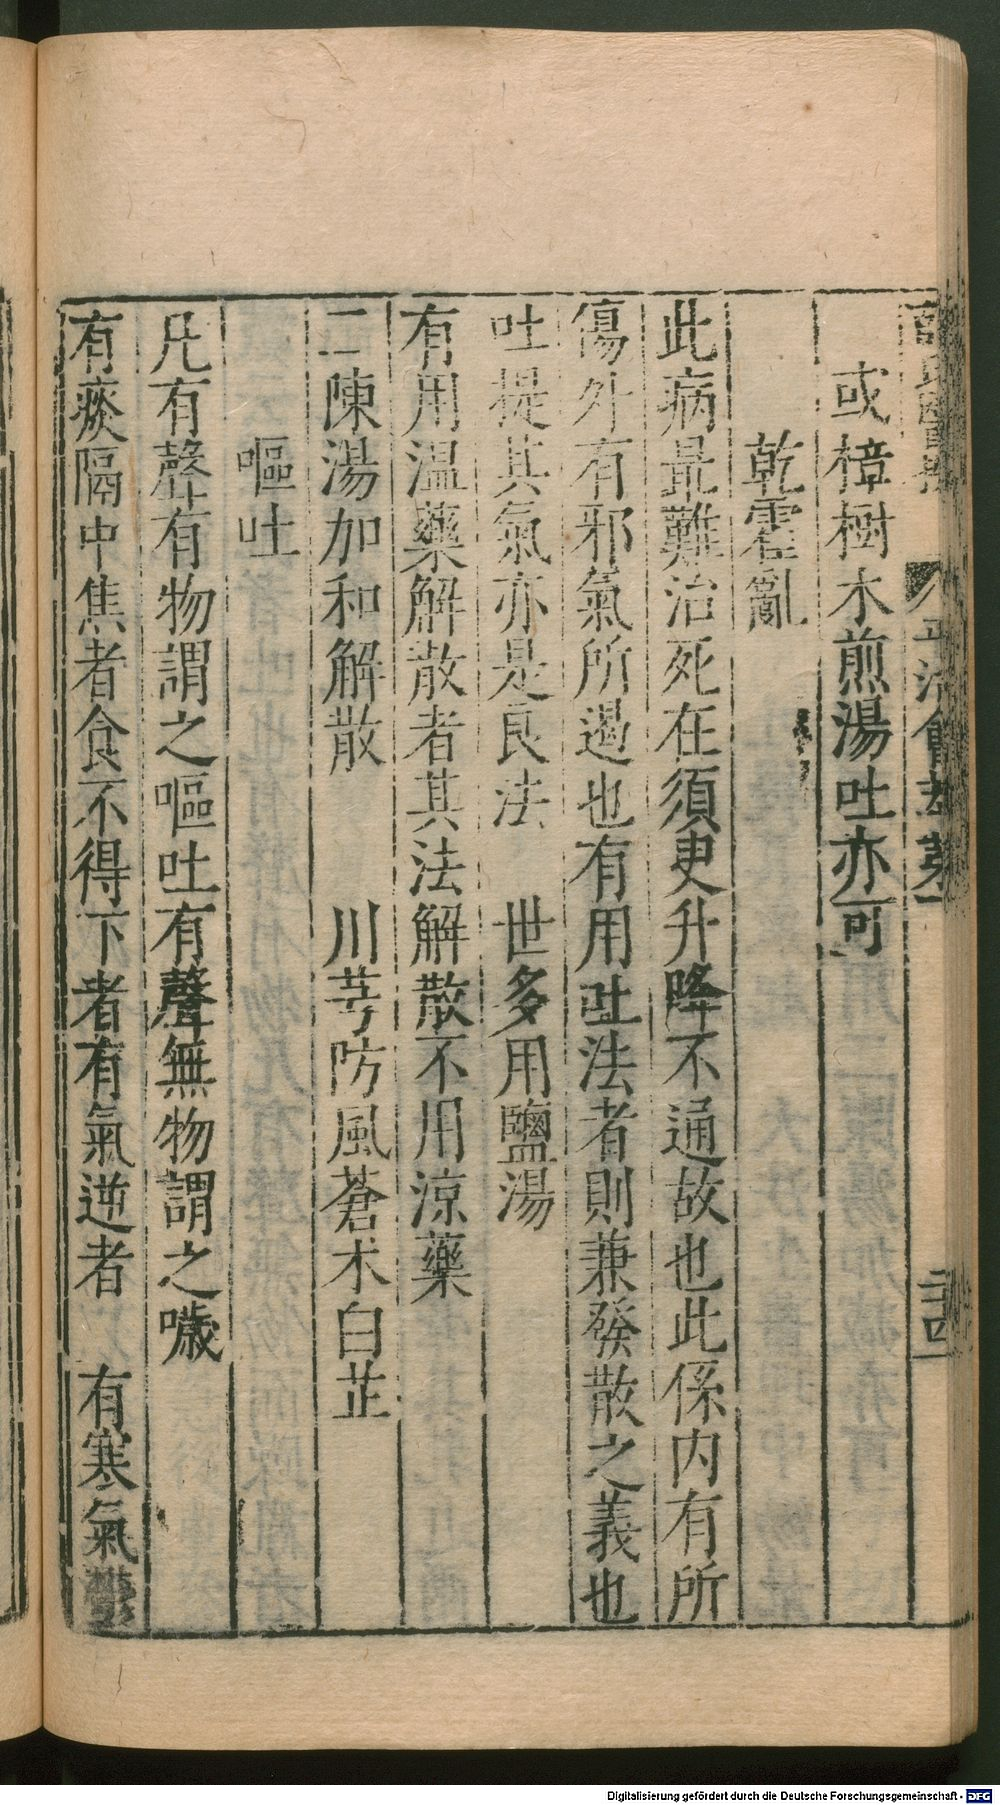 或樟樹木煎湯吐亦可
乾霍亂
此病最難治死在須臾升降不通故也此係内有所
傷外有邪氣所遏也有用吐法者則兼發散之義也
吐提其氣亦是良法 世多用鹽湯
有用温藥解散者其法解散不用涼藥
二陳湯加和解散 川芎防風蒼术白芷
嘔吐
凡有聲有物謂之嘔吐有聲無物謂之噦
有痰隔中焦者食不得下者有氣逆者 有寒氣鬱
平治會萃 二十四
Digitalisierung gefördert durch die Deutsche Forschungsgemeinschaft - DFG